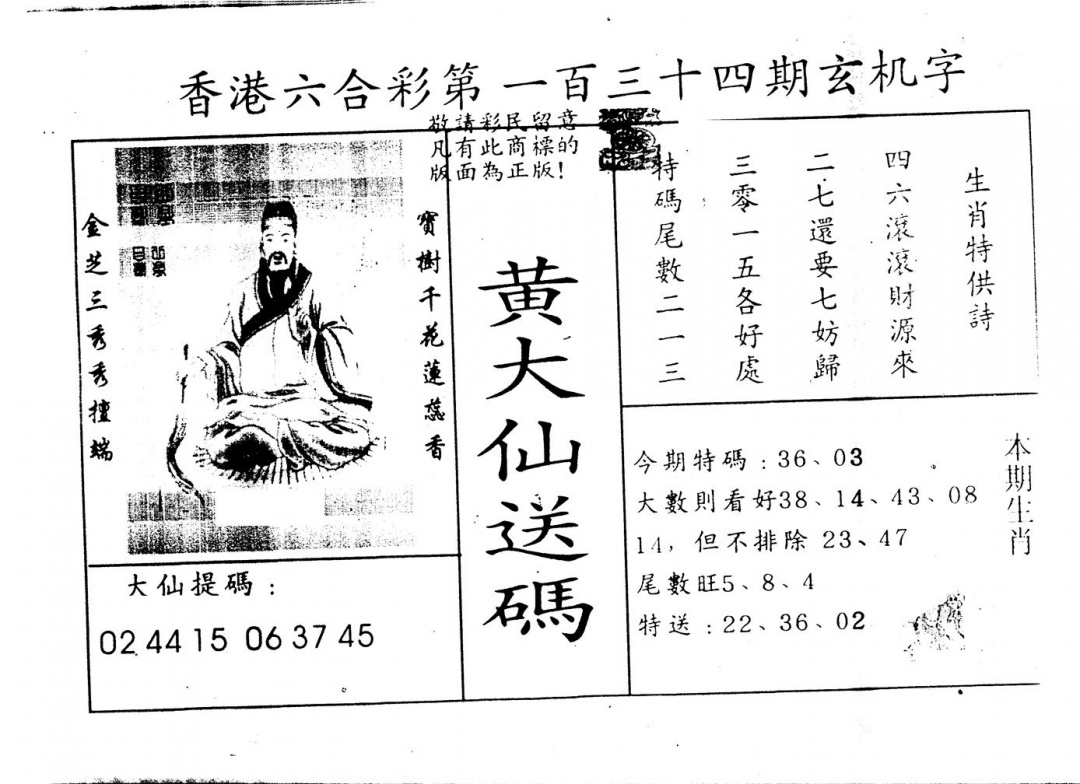 香港六合彩第一百三十四期玄机字
敬請彩民留意
凡有此商標的
版面為正版!
金芝三秀秀擅端
寶樹千花蓮蕊香
大仙提碼:
02 44 15 06 37 45
黃大仙送碼
生肖特供詩
四六滾滾財源來
二七還要七妨歸
三零一五各好處
特碼尾數二一三
本期生肖
今期特碼:36、03
大數則看好38、14、43、08
14,但不排除 23、47
尾數旺5、8、4
特送:22、36、02